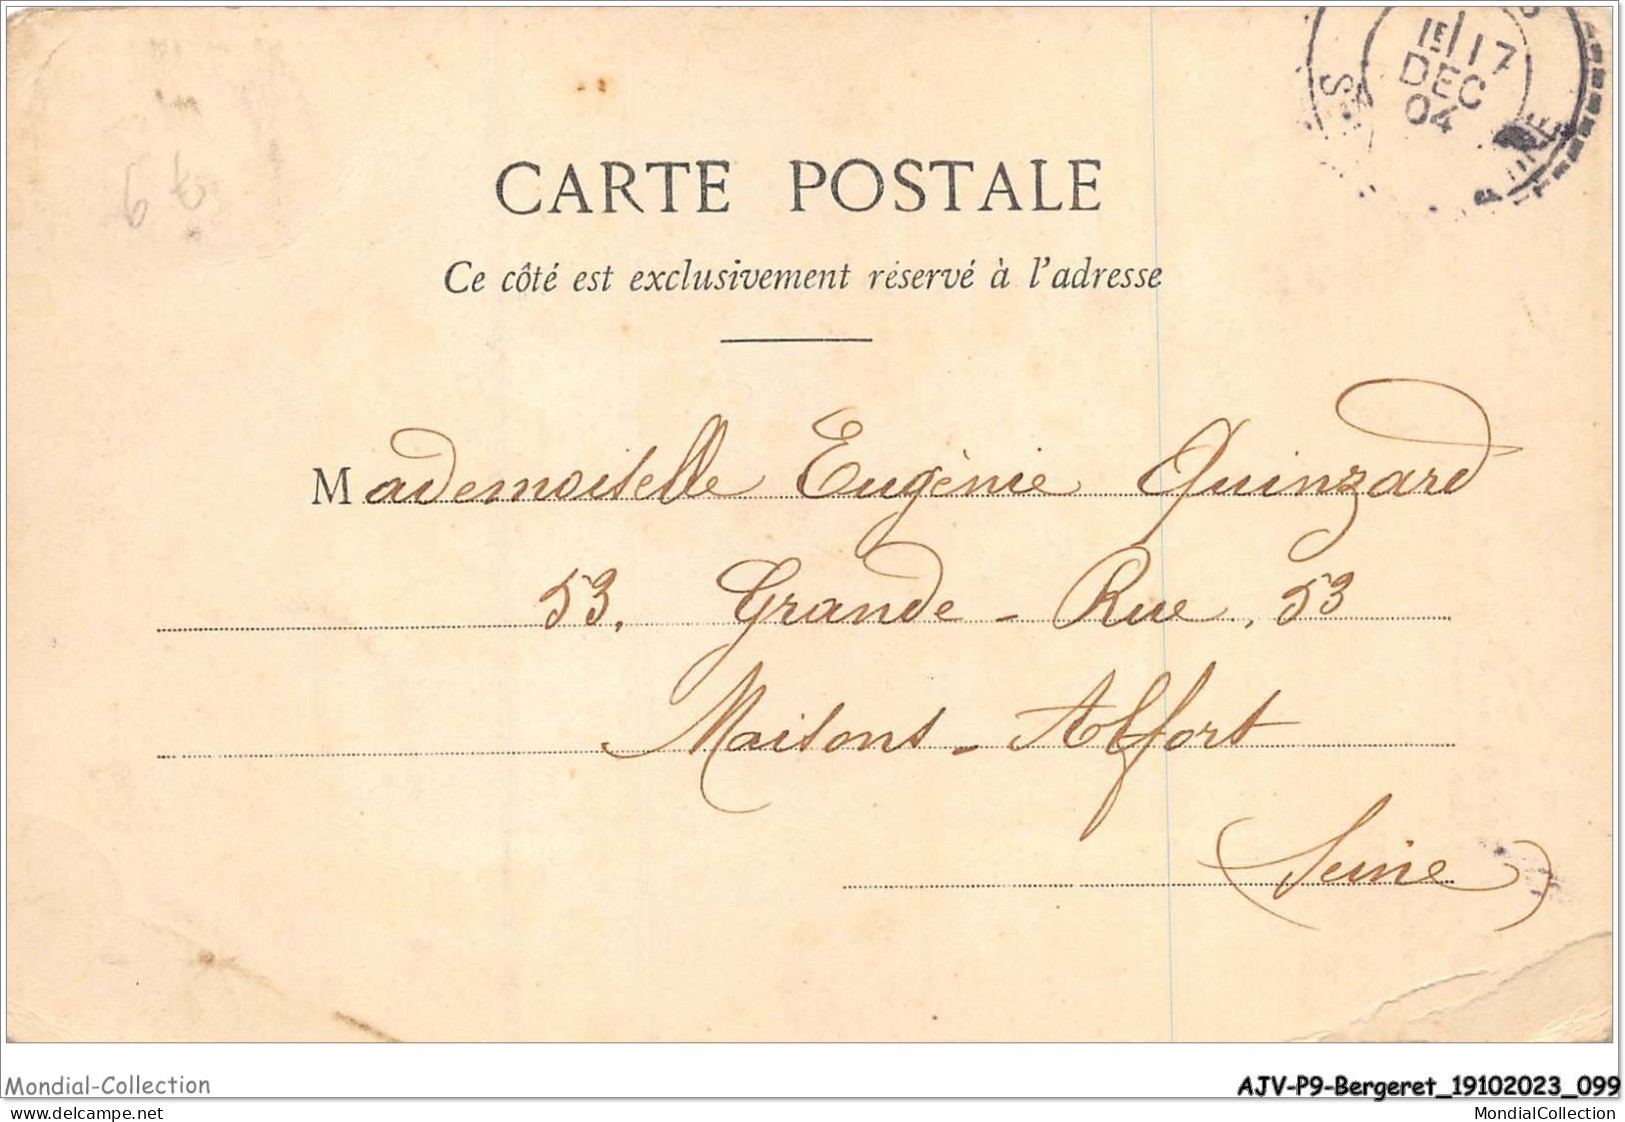 15/17
DEC
04
CARTE POSTALE
Ce côté est exclusivement réservé à l'adresse
Mademoiselle Eugénie Quinzard
53, Grande-Rue, 53
Maisons-Alfort
(Seine)
Mondial-Collection
AJV-P9-Bergeret_19102023_099
www.delcampe.net
MondialCollection